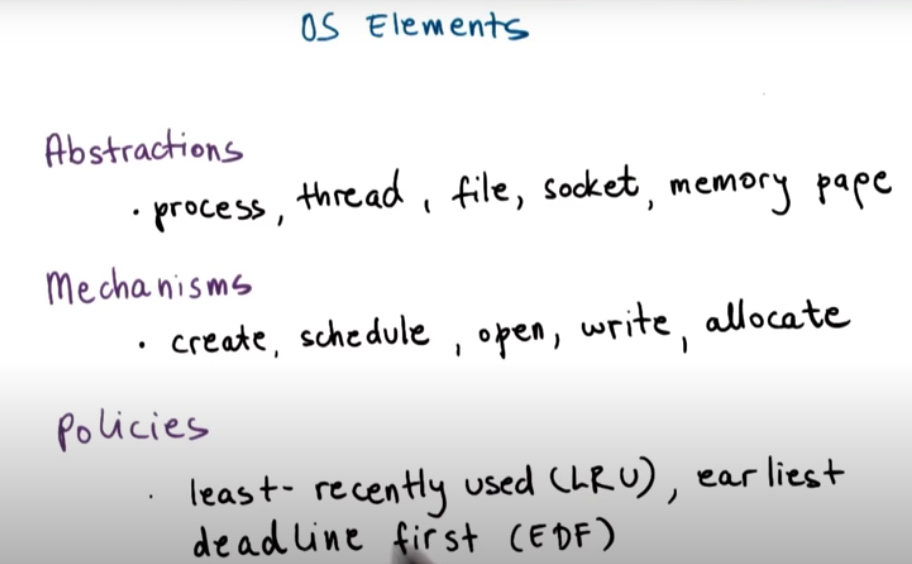 OS Elements
Abstractions
· process, thread, file, socket, memory pape
Mechanisms
· create, schedule, open, write, allocate
Policies
· least-recently used (LRU), earliest
deadline first (EDF)